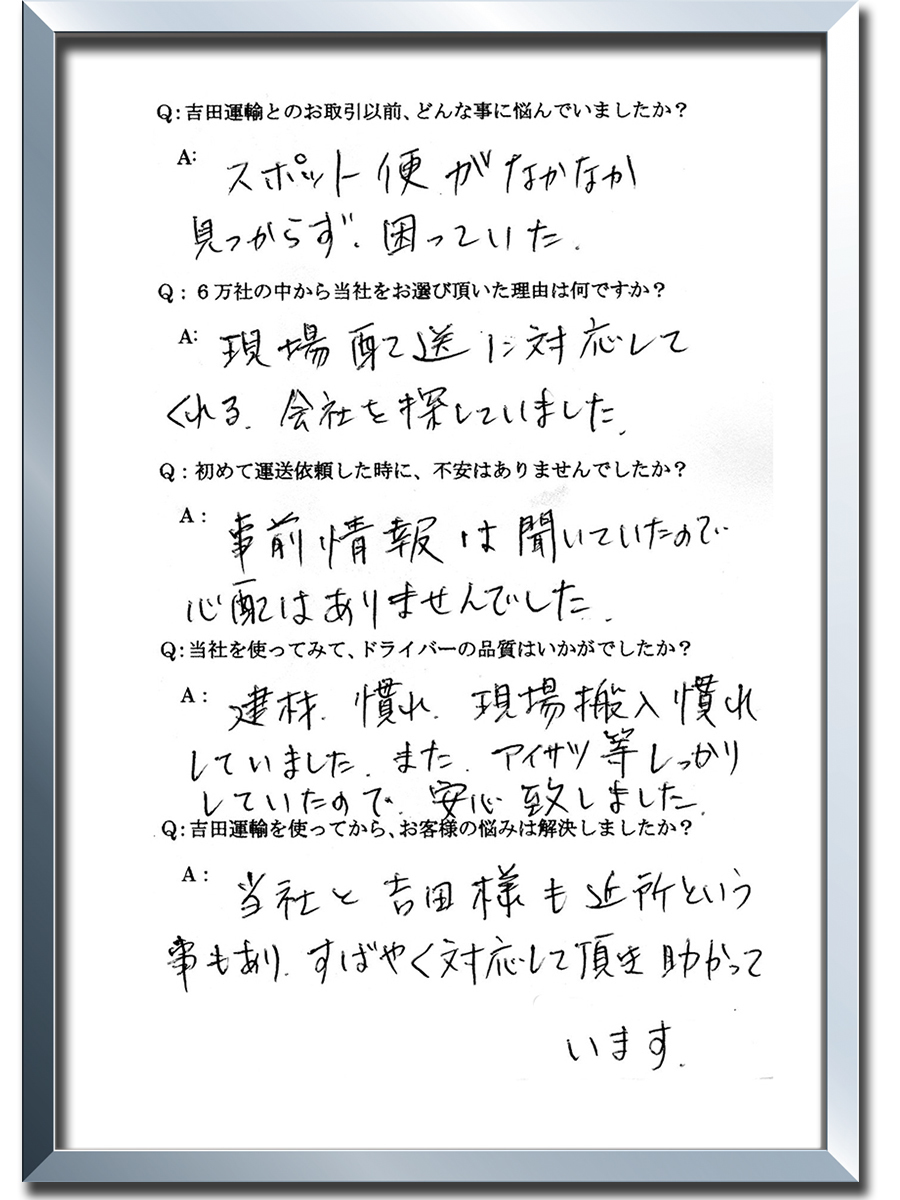 Q：吉田運輸とのお取引以前、どんな事に悩んでいましたか？
A： スポット便がなかなか
見つからず、困っていた。
Q：６万社の中から当社をお選び頂いた理由は何ですか？
A： 現場配送に対応して
くれる、会社を探していました。
Q：初めて運送依頼した時に、不安はありませんでしたか？
A： 事前情報は聞いていたので
心配はありませんでした。
Q：当社を使ってみて、ドライバーの品質はいかがでしたか？
A： 建材、慣れ、現場搬入慣れ
していました。また、アイサツ等しっかり
していたので、安心致しました。
Q：吉田運輸を使ってから、お客様の悩みは解決しましたか？
A： 当社と吉田様も近所という
事もあり、すばやく対応して頂き助かって
います。